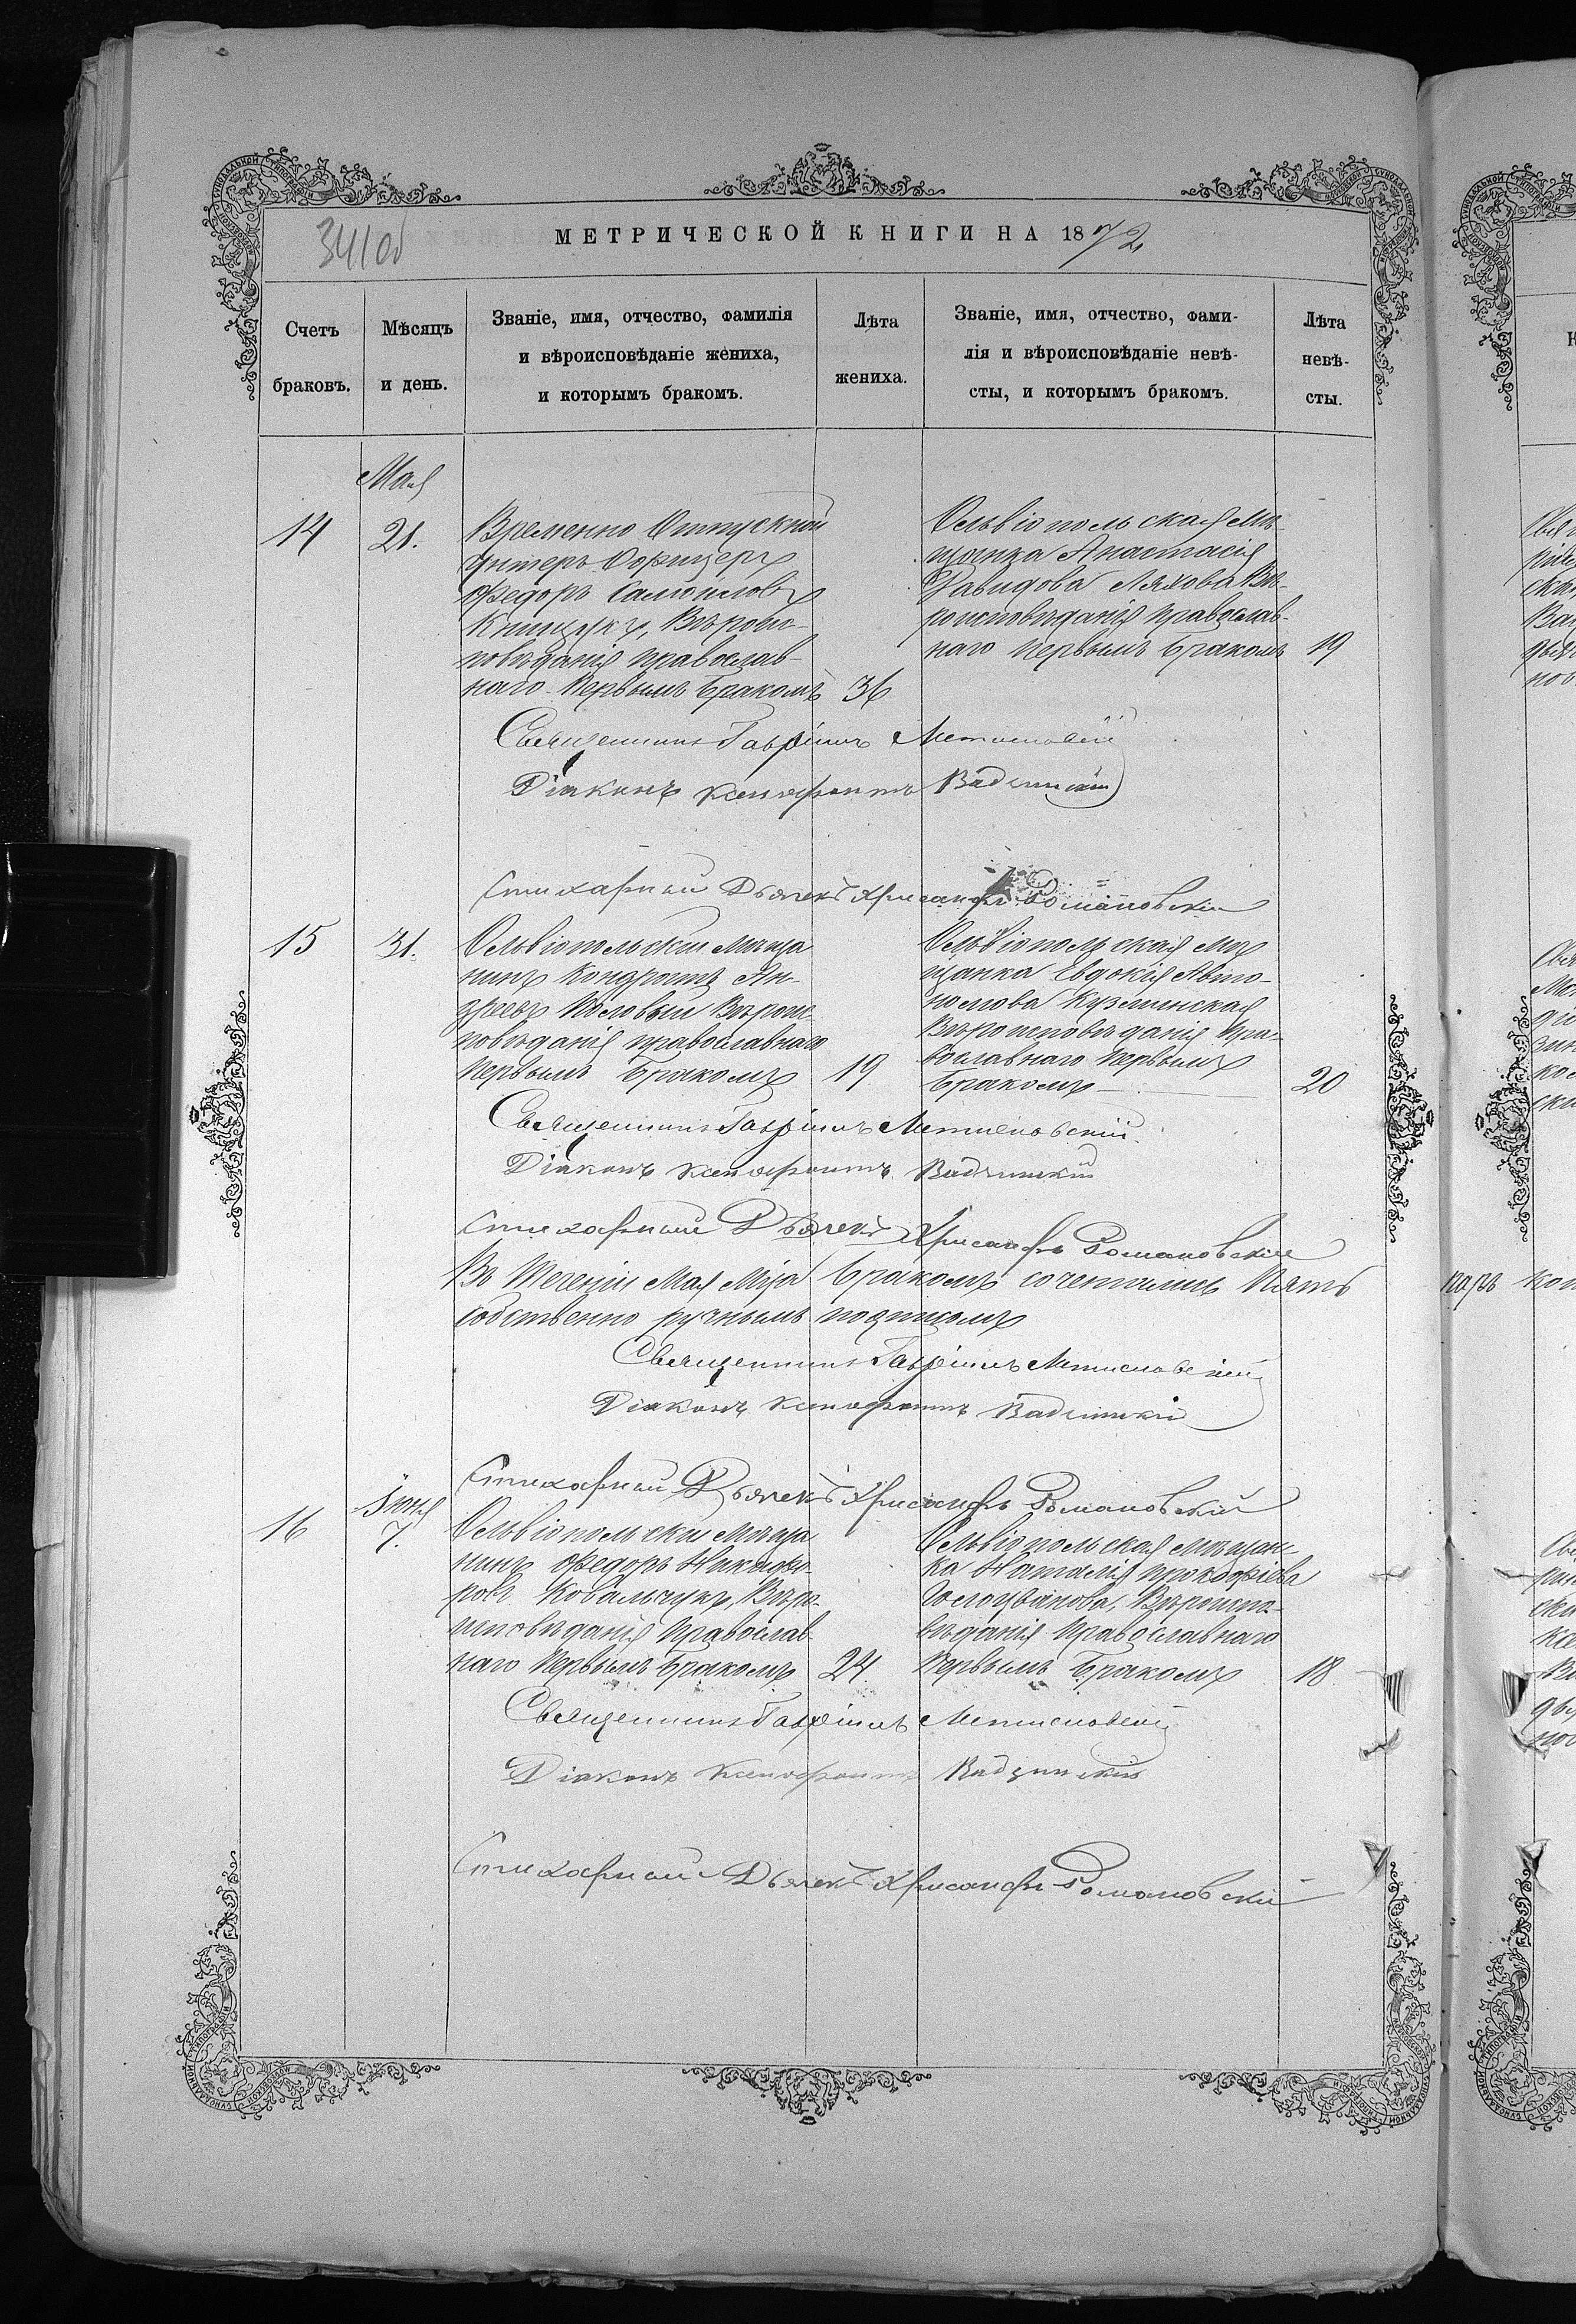 341 об
МЕТРИЧЕСКОЙ КНИГИ НА 1872
Счетъ браковъ.
Мѣсяцъ и день.
Званіе, имя, отчество, фамилія
и вѣроисповѣданіе жениха,
и которымъ бракомъ.
Лѣта жениха.
Званіе, имя, отчество, фами-
лія и вѣроисповѣданіе невѣ-
сты, и которымъ бракомъ.
Лѣта невѣ-
сты.
Мая
14
21.
Временно Отпускной
Унтеръ Офицеръ
Федоръ Самоиловъ
Книщукъ, Вѣроис-
повѣданія православ-
наго первымъ бракомъ
36
Ольвіопольская мѣ-
щанка Анастасія
Давидова Ляхова Вѣ-
роисповѣданія православ-
наго первымъ бракомъ
19
Священникъ Гавріилъ Мстиславскій
Діаконъ Ксенофонтъ
Стихарный Дьячекъ Хрисанфъ Романовскій
15
31.
Ольвіопольскій Мѣща
нинъ Кондратъ Ан-
дреевъ Половый Вѣроис-
повѣданія православнаго
первымъ Бракомъ
19
Ольвіопольская мѣ
щанка Евдокія Авто-
номова Кузминская
Вѣроисповѣданія пра-
вославнаго первымъ
бракомъ
20
Священникъ Гавріилъ Мстиславскій
Діаконъ Ксенофонтъ
Стихарный Дьячекъ Хрисанфъ Романовскій
Въ Теченіи Мая М-ца бракомъ сочетались Пять
собственно ручнымъ подписомъ
Священникъ Гавріилъ Мстиславскій
Діаконъ Ксенофонтъ
Стихарный Дьячекъ Хрисанфъ Романовскій
16
Іюня
7.
Ольвіопольскій мѣща
нинъ Федоръ Никифо-
ровъ Ковальчукъ, Вѣро-
исповѣданія Православ-
наго первымъ бракомъ
24
Ольвіопольская мѣщан-
ка Наталія Прокофіева
Вѣроиспо-
вѣданія Православнаго
первымъ Бракомъ
18
Священникъ Гавріилъ Мстиславскій
Діаконъ Ксенофонтъ
Стихарный Дьячекъ Хрисанфъ Романовскій